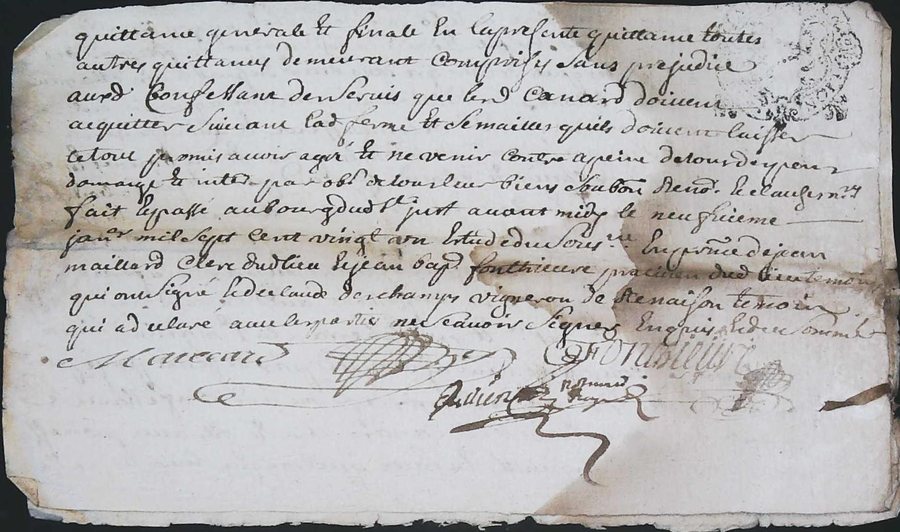 quittance generale et finale en la presente quittance toutes
autres quittances demeurant comprises sans prejudice
aud confessant des servis que led Canard doivent
acquitter suivant lad ferme et semailles quils doivent laisser
ce tout promis avoir agré et ne venir contre a peine de tous despens
domage et inter par obn de tous leur biens soubon Renon et clauses
fait et passé au bourg dud St just avant midy le neufvieme
janer mil sept cent vingt un Estude du sous ne En prnce de jean
maillard Clerc dud lieu et jean bap fonthieure praticien dud lieu temoins
qui ont signé et de claude deschamps vigneron de Renaison temoin
qui a declaré avec les parties ne scavoir signer Enquis et de ce sommé